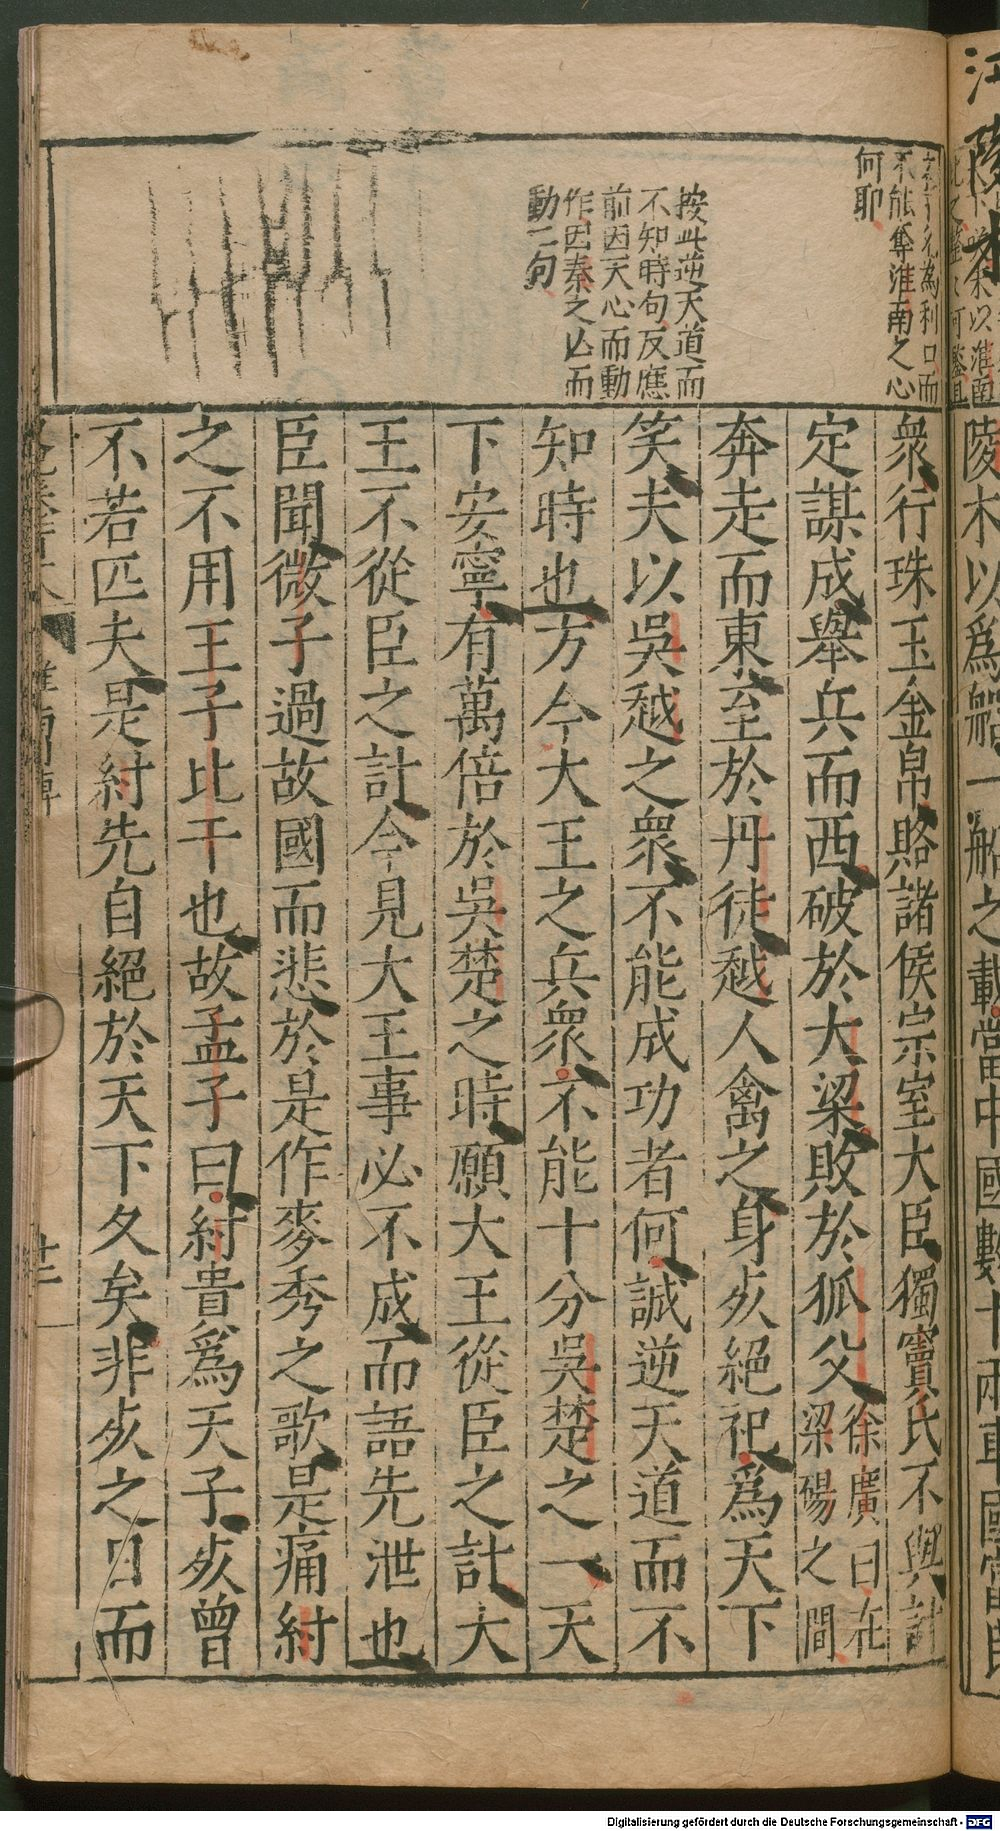 不能奪淮南之心
何耶
按此逆天道而
不知時句反應
前因天心而動
作因秦之必而
動二句
衆行珠玉金帛賂諸侯宗室大臣獨竇氏不與計
定謀成舉兵而西破於大梁敗於狐父徐廣曰在梁碭之間
奔走而東至於丹徒越人禽之身死絕祀爲天下
笑夫以吳越之衆不能成功者何誠逆天道而不
知時也方今大王之兵衆不能十分吳楚之一天
下安寧有萬倍於吳楚之時願大王從臣之計大
王不從臣之計今見大王事必不成而語先泄也
臣聞微子過故國而悲於是作麥秀之歌是痛紂
之不用王子比干也故孟子曰紂貴爲天子死曾
不若匹夫是紂先自絕於天下久矣非死之日而
陵木以爲船一船之載當中國數十兩車國富民
Digitalisierung gefördert durch die Deutsche Forschungsgemeinschaft - DFG